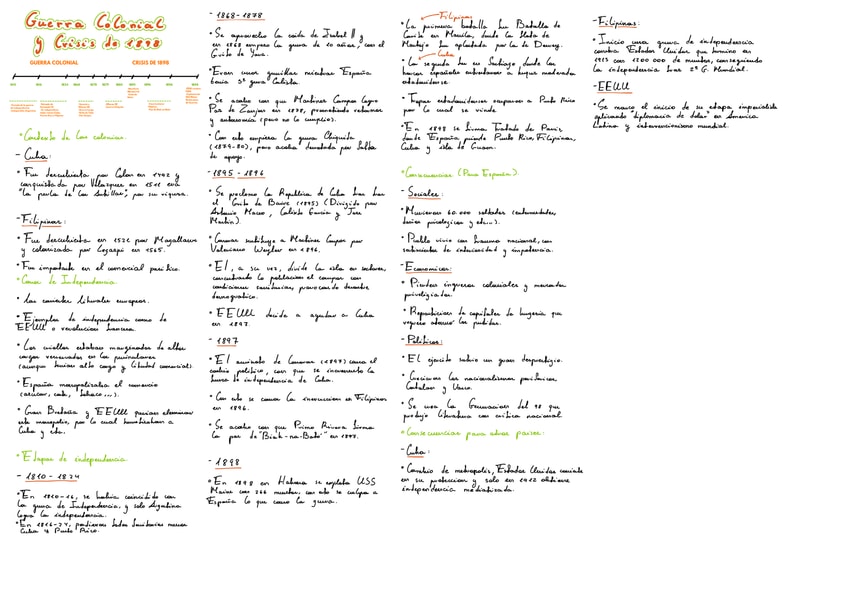 Guerra Colonial
y Crisis de 1898
GUERRA COLONIAL CRISIS DE 1898
*Contexto de las colonias.
- Cuba:
* Fue descubierta por Colon en 1492 y
conquistada por Velazquez en 1511 era
"la perla de las Antillas", por su riqueza.
- Filipinas:
* Fue descubierta en 1521 por Magallanes
y colonizada por Legazpi en 1565.
* Fue importante en el comercial pacifico.
* Causa de Independencia.
* Las corrientes liberales europeas.
* Ejemplos de independencia como de
EEUU o revolucion francesa.
* Los criollos estaban marginados de altos
cargos reservados en los peninsulares
(aunque tenian alto cargo y libertad comercial).
* España monopolizaba el comercio
(azucar, cafe, tabaco...).
* Gran Bretaña y EEUU querian eliminar
este monopolio, por lo cual
Cuba y
* Etapas de independencia
- 1810 - 1824
* En 1810-16, se habia coincidido con
la guerra de Independencia, y solo Argentina
logra la independencia.
* En 1816-24, perdieron todos territorios menos
Cuba y Puerto Rico.
- 1868-1878
* Se aprovecho la caida de Isabel II y
en 1868 empezo la guerra de 10 años, con el
Grito de Yara.
* Eran unas guerrillas mientras España
tenia 3ª guerra Carlista.
* Se acabo con que Martinez Campos logro
Paz de Zanjon en 1878, prometiendo reformas
y autonomia (pero no lo cumplio).
* Con esto empieza la guerra Chiquita
(1879-80), pero acaba derrotada por falta
de apoyo.
- 1895 - 1896
* Se proclama la Republica de Cuba tras
el Grito de Baire (1895) (Dirigido por
Antonio Maceo, Calixto Garcia y Jose
Martin).
* Canovas sustituye a Martinez Campos por
Valeriano Weyler en 1896.
* El, a su vez, divide la isla en sectores,
concentrando la poblacion al campos con
condiciones sanitarias, provocando desastre
demografico.
* EEUU decide a ayudar a Cuba
en 1897.
- 1897
* El asesinato de Canovas (1897) causa el
cambio politico, con que se incremento la
lucha de independencia de Cuba.
* Con esto se causa la insurreccion en Filipinas
en 1896.
* Se acabo con que Primo Rivera firma
la paz de "Biak-na-Bato" en 1897.
- 1898
* En 1898 en Habana se explota USS
Maine con 266 muertos, con esto se culpa a
España lo que causo la guerra.
Filipinas
* La primera batalla fue Batalla de
Cavite en Manila, donde la flota de
Montojo fue aplastada por la de Dewey.
Cuba
* La segunda fue en Santiago donde los
barcos españoles enfrentaron a buques modernos
estadounidenses.
* Tropas estadounidenses ocuparon a Puerto Rico
por lo cual se rinde.
* En 1898 se firma Tratado de Paris,
donde España pierde Puerto Rico, Filipinas,
Cuba y isla de Guam.
*Consecuencias (Para España).
- Sociales:
* Murieron 60.000 soldados (enfermedades,
daños psicologicos y etc...).
* Pueblo vivio con trauma nacional, con
sentimientos de inferioridad y impotencia.
- Economicos:
* Pierden ingresos coloniales y mercados
privilegiados.
* Repatriacion de capitales de burgesia que
- Politicos:
* El ejercito sufrio un gran desprestigio.
* Crecieron los nacionalismos perifericos,
Catalan y Vasco.
* Se crea la Generacion del 98 que
produjo literatura con critica nacional.
* Consecuencias para otros paises:
- Cuba:
* Cambio de metropolis, Estados Unidos
en su proteccion y solo en 1912 obtiene
independencia mediatizada.
- Filipinas:
* Inicio una guerra de independencia
contra Estados Unidos que termino en
1913 con 1200 000 de muertos, consiguiendo
la independencia tras 2ª G. Mundial.
- EEUU
* Se marco el inicio de su etapa imperialista
aplicando "diplomacia de dolar" en America
Latina y intervencionismo mundial.